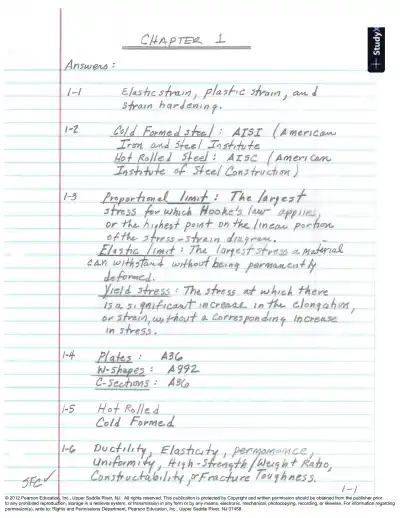 CHAPTER 1
+ StudyX
Answers:
1-1 Elastic strain, plastic strain, and
strain hardening.
1-2 Cold Formed steel: AISI (American
Iron and Steel Institute
Hot Rolled Steel: AISC (American
Institute of Steel Construction)
1-3 Proportional limit: The largest
stress for which Hooke's law applies,
or the highest point on the linear portion
of the stress-strain diagram.
Elastic limit: The largest stress a material
can withstand without being permanently
deformed.
Yield stress: The stress at which there
is a significant increase in the elongation,
or strain, without a corresponding increase
in stress.
1-4 Plates: A36
W-shapes: A992
C-sections: A36
1-5 Hot Rolled
Cold Formed
1-6 Ductility, Elasticity, permomance,
Uniformity, High-Strength/Weight Ratio,
Constructability & Fracture Toughness.
JFC✓
1-1
© 2012 Pearson Education, Inc., Upper Saddle River, NJ. All rights reserved. This publication is protected by Copyright and written permission should be obtained from the publisher prior
to any prohibited reproduction, storage in a retrieval system, or transmission in any form or by any means, electronic, mechanical, photocopying, recording, or likewise. For information regarding
permission(s), write to: Rights and Permissions Department, Pearson Education, Inc., Upper Saddle River, NJ 07458.